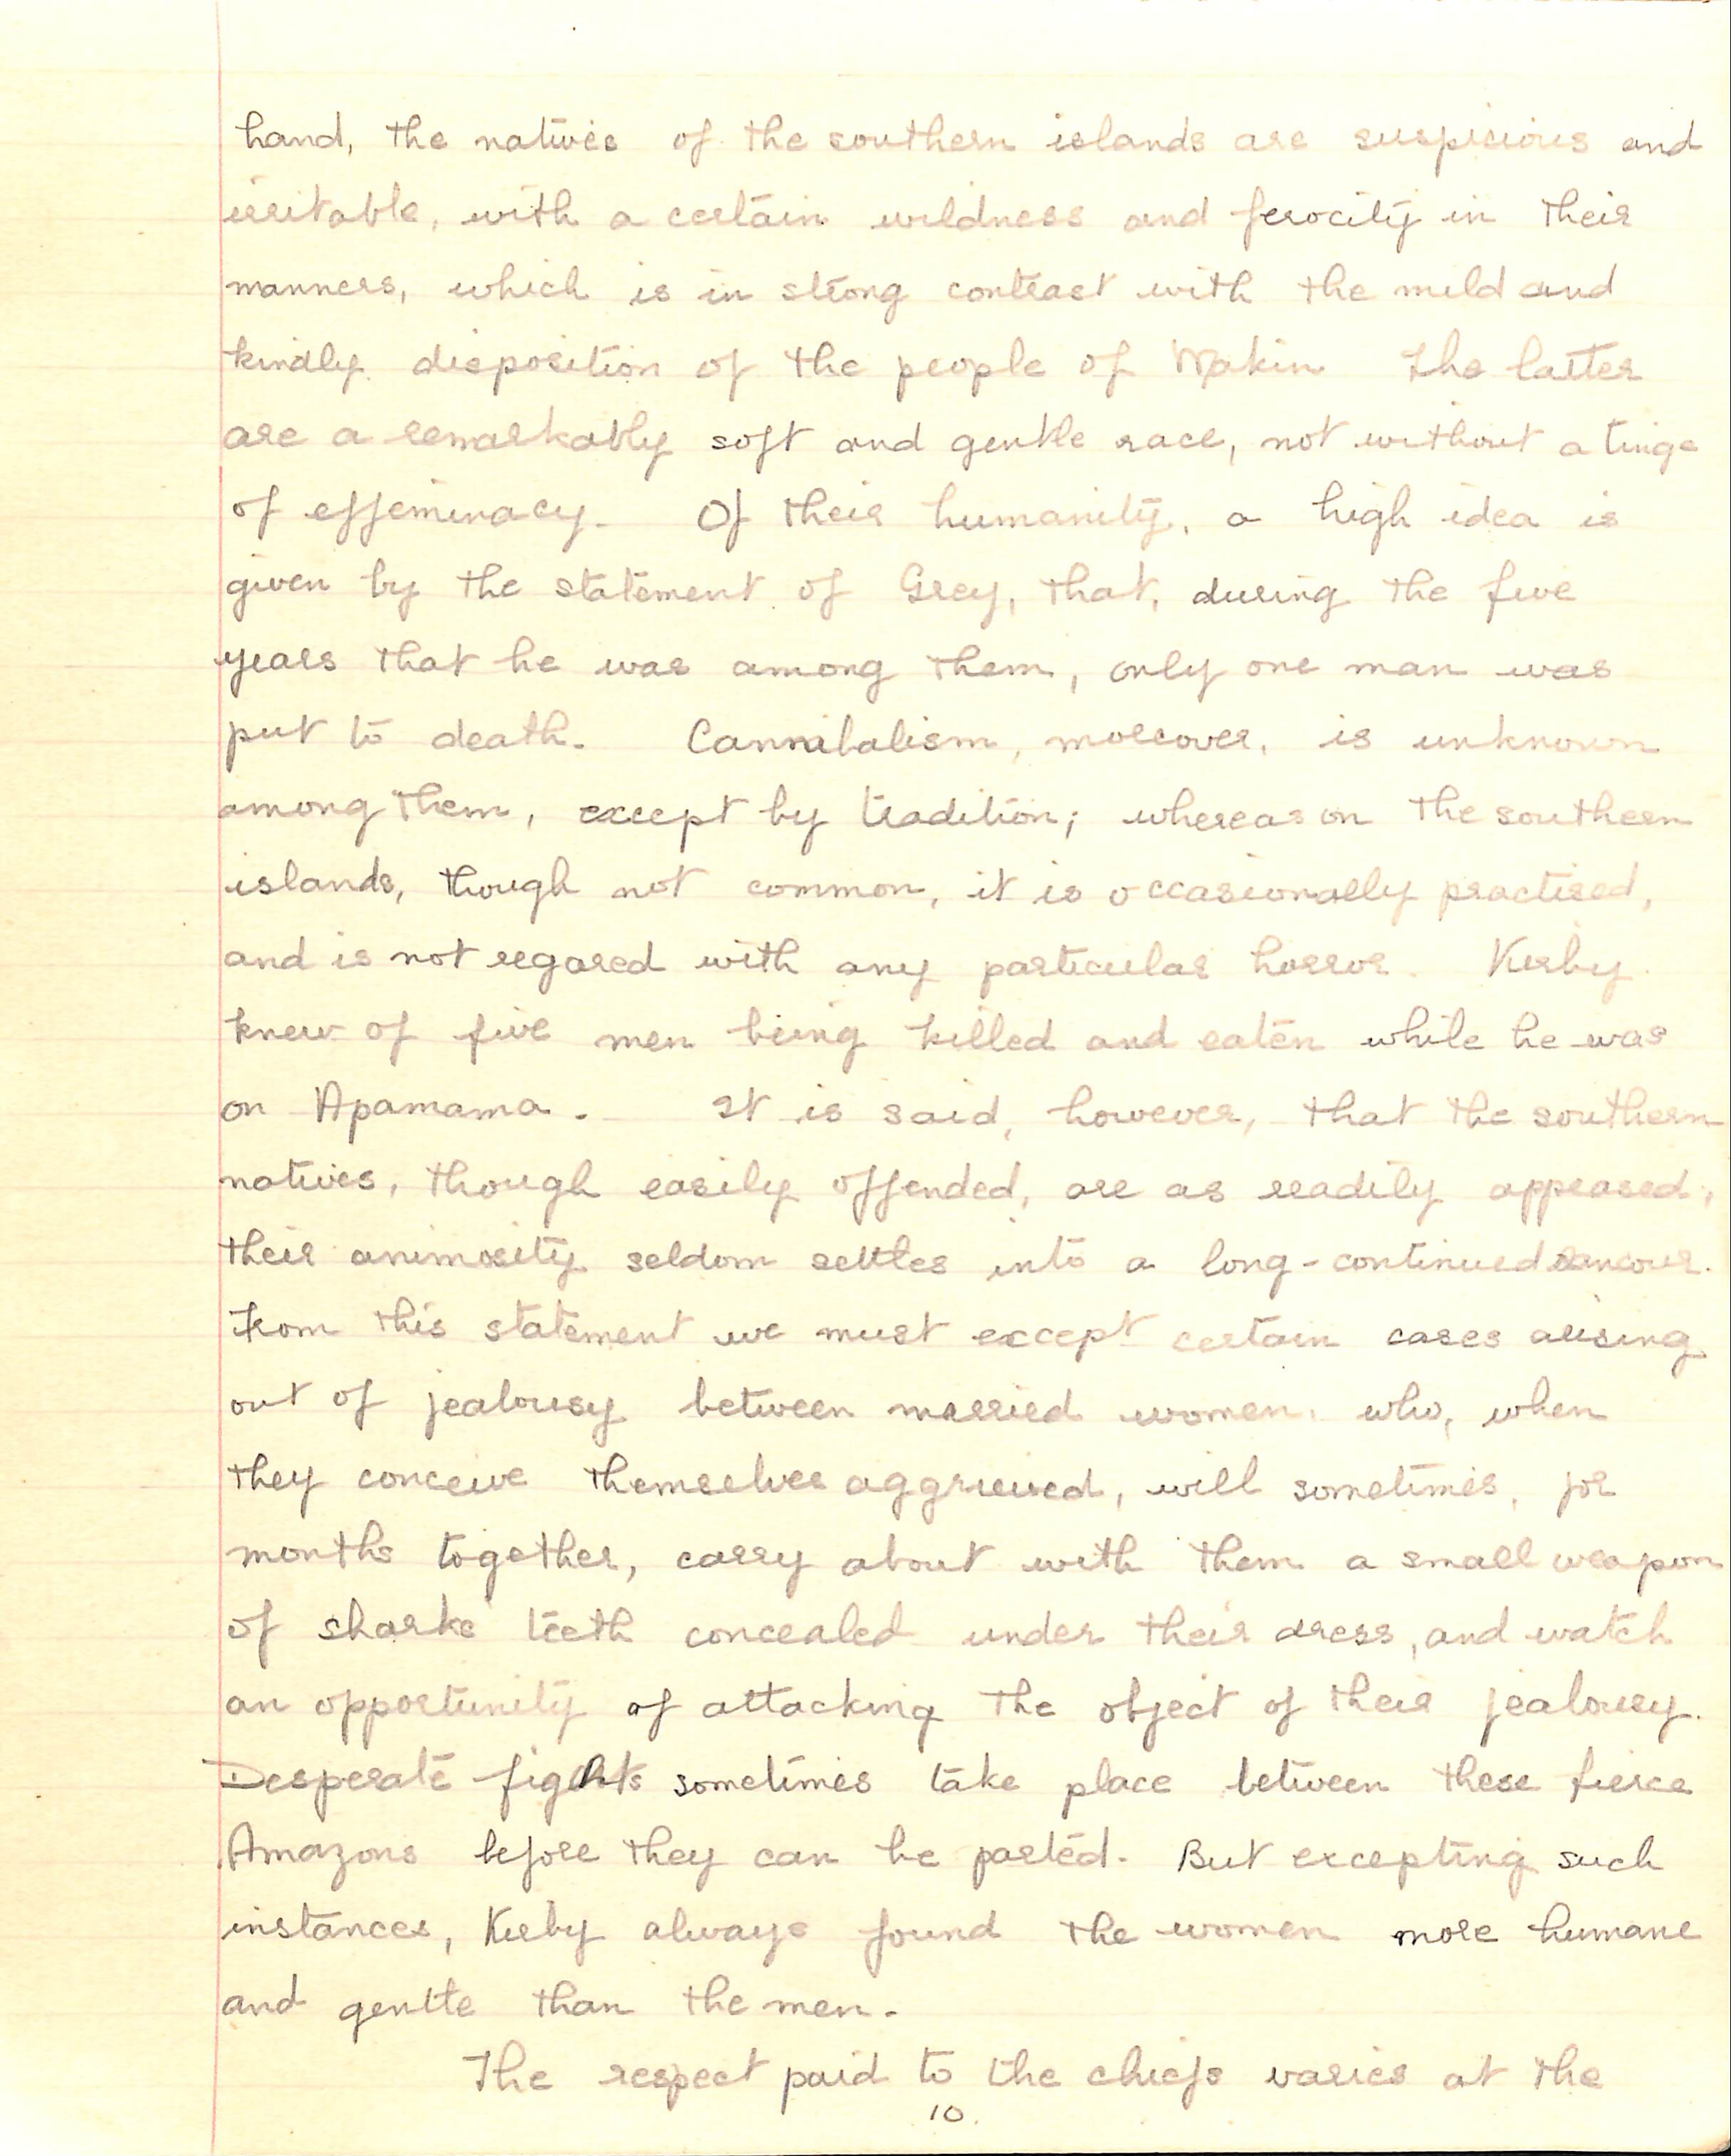 hand, the natives of the southern islands are suspicious and
irritable, with a certain wildness and ferocity in their
manners, which is in strong contrast with the mild and
kindly disposition of the people of Makin The latter
are a remarkably soft and gentle race, not without a tinge
of effeminacy. Of their humanity, a high idea is
given by the statement of Grey, that, during the five
years that he was among them, only one man was
put to death. Cannibalism, moreover, is unknown
among them, except by tradition; whereas on the southern
islands, though not common, it is occasionally practised,
and is not regared with any particular horror. Kirby
knew of five men being killed and eaten while he was
on Apamama. It is said, however, that the southern
natives, though easily offended, are as readily appeased;
their animosity seldom settles into a long-continued rancour.
From this statement we must except certain cases arising
out of jealousy between married women, who, when
they conceive themselves aggrieved, will sometimes, for
months together, carry about with them a small weapon
of sharks teeth concealed under their dress, and watch
an opportunity of attacking the object of their jealousy.
Desperate fights sometimes take place between these fierce
Amazons before they can be parted. But excepting such
instances, Kirby always found the women more humane
and gentle than the men.
The respect paid to the chiefs varies at the
10.